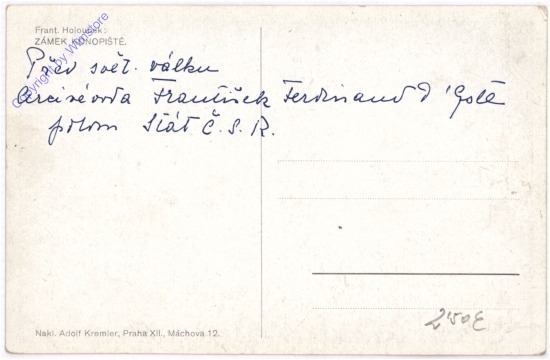 Frant. Holoubek:
ZÁMEK KONOPIŠTĚ.
Copyright by Wienstore
Před svět. válku
Arcivévoda František Ferdinand d'Este
potom Stát Č. S. R.
250€
Nakl. Adolf Kremler, Praha XII., Máchova 12.